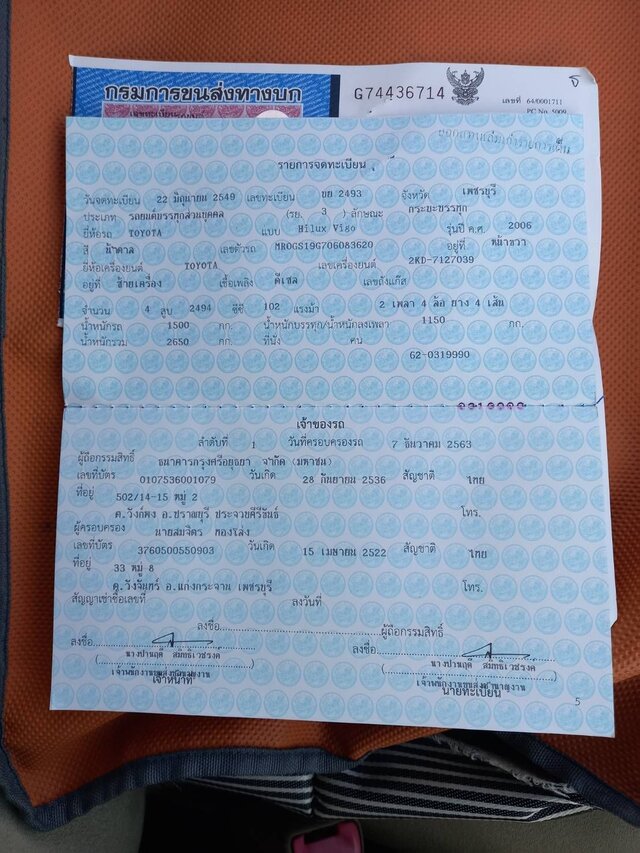 กรมการขนส่งทางบก
G74436714
เลขที่ 64/0001711
PC No. 5009
รายการจดทะเบียน
วันจดทะเบียน 22 มิถุนายน 2549 เลขทะเบียน บย 2493 จังหวัด เพชรบุรี
ประเภท รถยนต์บรรทุกส่วนบุคคล (รย. 3 ) ลักษณะ กระบะบรรทุก
ยี่ห้อรถ TOYOTA แบบ Hilux Vigo รุ่นปี ค.ศ. 2006
สี น้ำตาล เลขตัวรถ MR0GS19G706083620 อยู่ที่ หน้าขวา
ยี่ห้อเครื่องยนต์ TOYOTA เลขเครื่องยนต์ 2KD-7127039
อยู่ที่ ซ้ายเครื่อง เชื้อเพลิง ดีเซล เลขถังแก๊ส
จำนวน 4 สูบ 2494 ซีซี 102 แรงม้า 2 เพลา 4 ล้อ ยาง 4 เส้น
น้ำหนักรถ 1500 กก. น้ำหนักบรรทุก/น้ำหนักลงเพลา 1150 กก.
น้ำหนักรวม 2650 กก. ที่นั่ง คน
62-0319990
เจ้าของรถ
ลำดับที่ 1 วันที่ครอบครองรถ 7 ธันวาคม 2563
ผู้ถือกรรมสิทธิ์ ธนาคารกรุงศรีอยุธยา จำกัด (มหาชน)
เลขที่บัตร 0107536001079 วันเกิด 28 กันยายน 2536 สัญชาติ ไทย
ที่อยู่ 502/14-15 หมู่ 2
ต.วังก์พง อ.ปราณบุรี ประจวบคีรีขันธ์ โทร.
ผู้ครอบครอง นายสมจิตร ทองโล่ง
เลขที่บัตร 3760500550903 วันเกิด 15 เมษายน 2522 สัญชาติ ไทย
ที่อยู่ 33 หมู่ 8
ต.วังจันทร์ อ.แก่งกระจาน เพชรบุรี โทร.
สัญญาเช่าซื้อเลขที่ ลงวันที่
ลงชื่อ ผู้ถือกรรมสิทธิ์
ลงชื่อ ลงชื่อ
เจ้าหน้าที่ นายทะเบียน
5